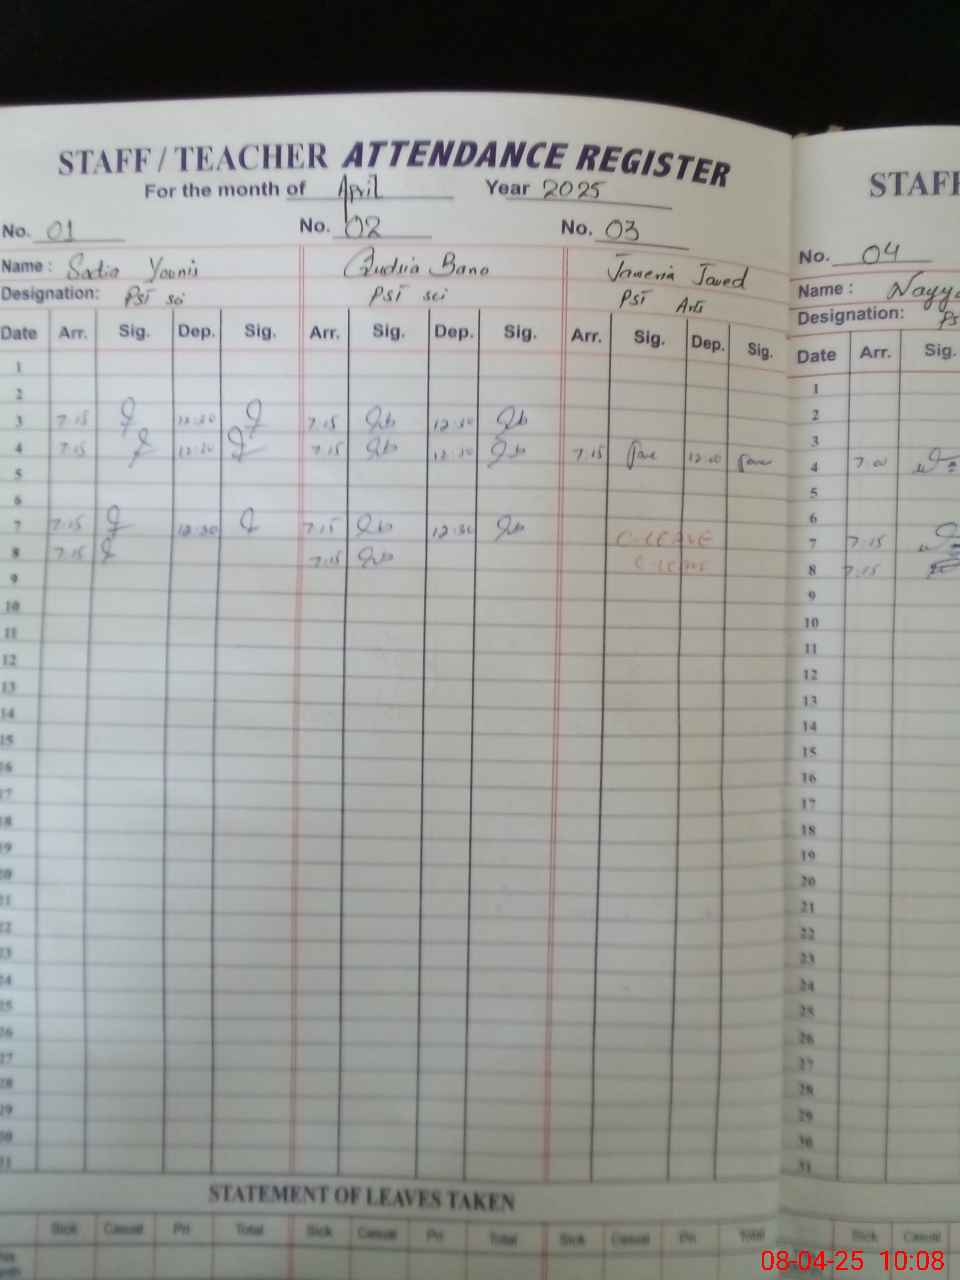 STAFF / TEACHER ATTENDANCE REGISTER
For the month of April Year 2025
No. 01 No. 02 No. 03
Name : Sadia Younis Qudsia Bano Javeria Javed
Designation: PST sci PST sci PST Arts
Date Arr. Sig. Dep. Sig. Arr. Sig. Dep. Sig. Arr. Sig. Dep. Sig.
1
2
3 7.15 12.30 7.15 12.30
4 7.15 12.30 7.15 12.30 7.15 12.00
5
6
7 7.15 12.30 7.15 12.30 C-LEAVE
8 7.15 7.15 C-LEAVE
9
10
11
12
13
14
15
16
17
18
19
20
21
22
23
24
25
26
27
28
29
30
31
STATEMENT OF LEAVES TAKEN
Sick Casual Pri Total Sick Casual Pri Total Sick Casual Pri Total
STAFF
No. 04
Name : Nayya
Designation: PS
Date Arr. Sig.
1
2
3
4 7.00
5
6
7 7.15
8 7.15
9
10
11
12
13
14
15
16
17
18
19
20
21
22
23
24
25
26
27
28
29
30
31
Sick Casual
08-04-25 10:08